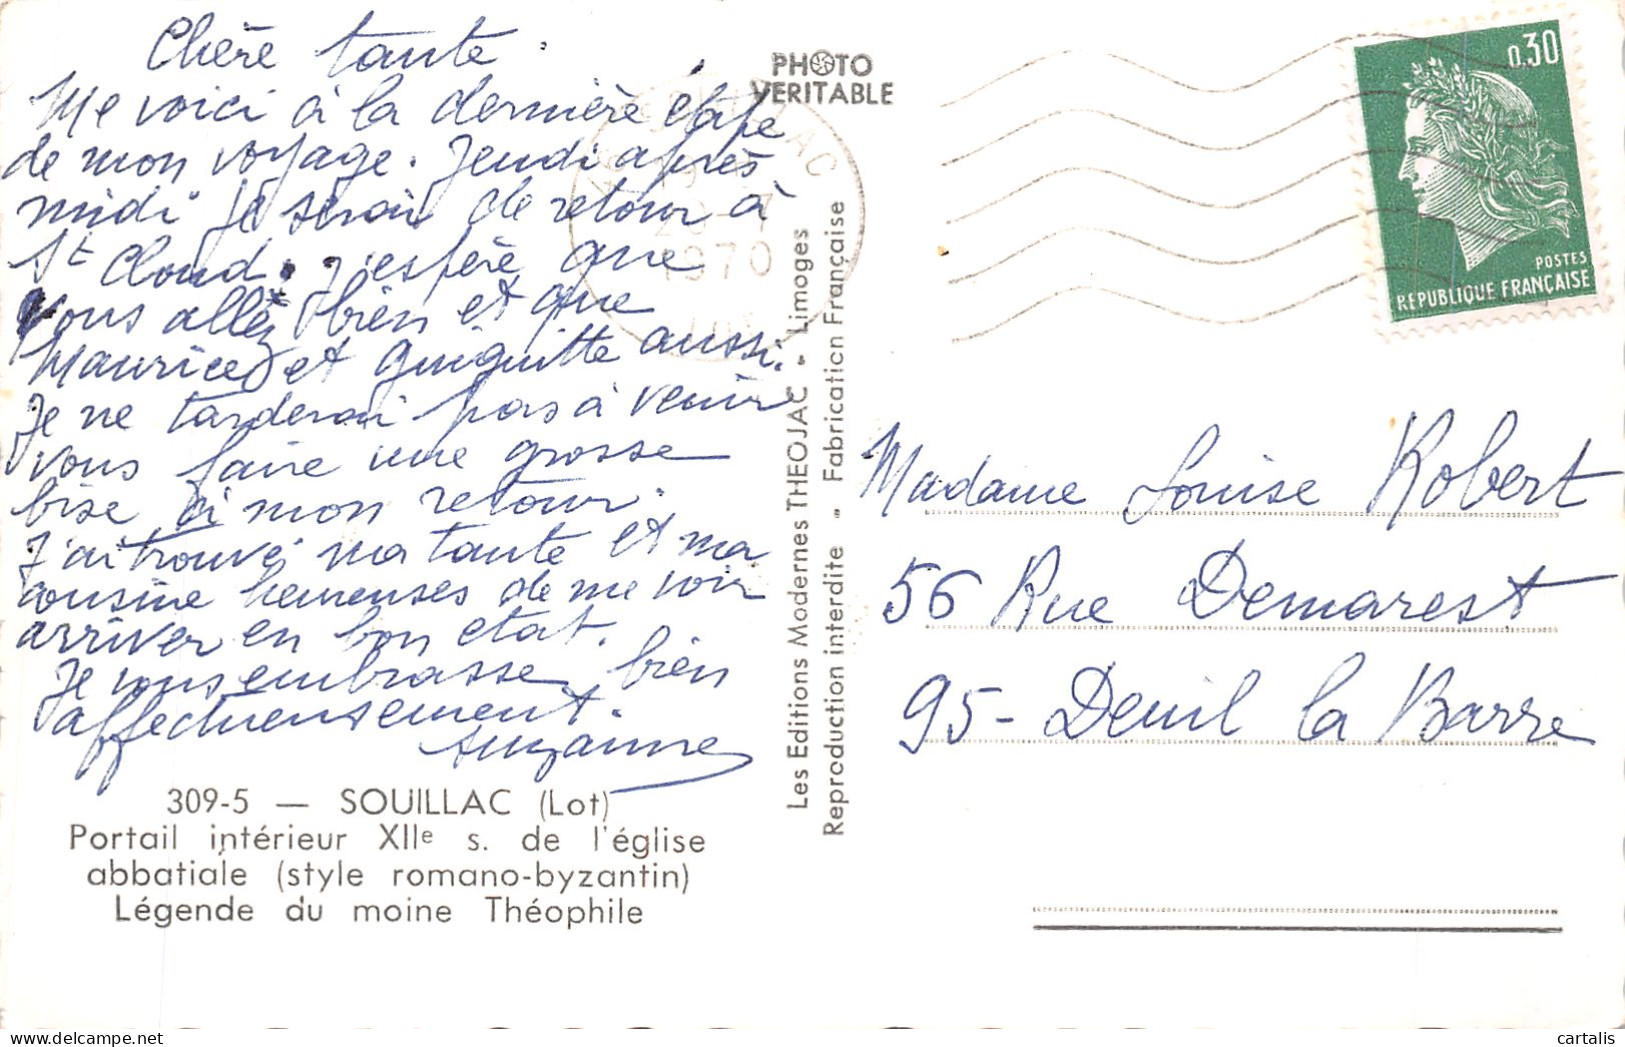 Chère tante.
Me voici à la dernière étape
de mon voyage. Jeudi après
midi je serai de retour à
St Cloud. J'espère que
vous allez bien et que
Maurice et Guiguitte aussi.
Je ne tarderai pas à venir
vous faire une grosse
bise à mon retour.
J'ai trouvé ma tante et ma
cousine heureuses de me voir
arriver en bon état.
Je vous embrasse bien
affectueusement.
Suzanne
309-5 — SOUILLAC (Lot)
Portail intérieur XIIe s. de l'église
abbatiale (style romano-byzantin)
Légende du moine Théophile
PHOTO
VERITABLE
Les Editions Modernes THEOJAC - Limoges
Reproduction interdite - Fabrication Française
1970
0,30
POSTES
REPUBLIQUE FRANÇAISE
Madame Louise Robert
56 Rue Demarest
95- Deuil la Barre
cartalis